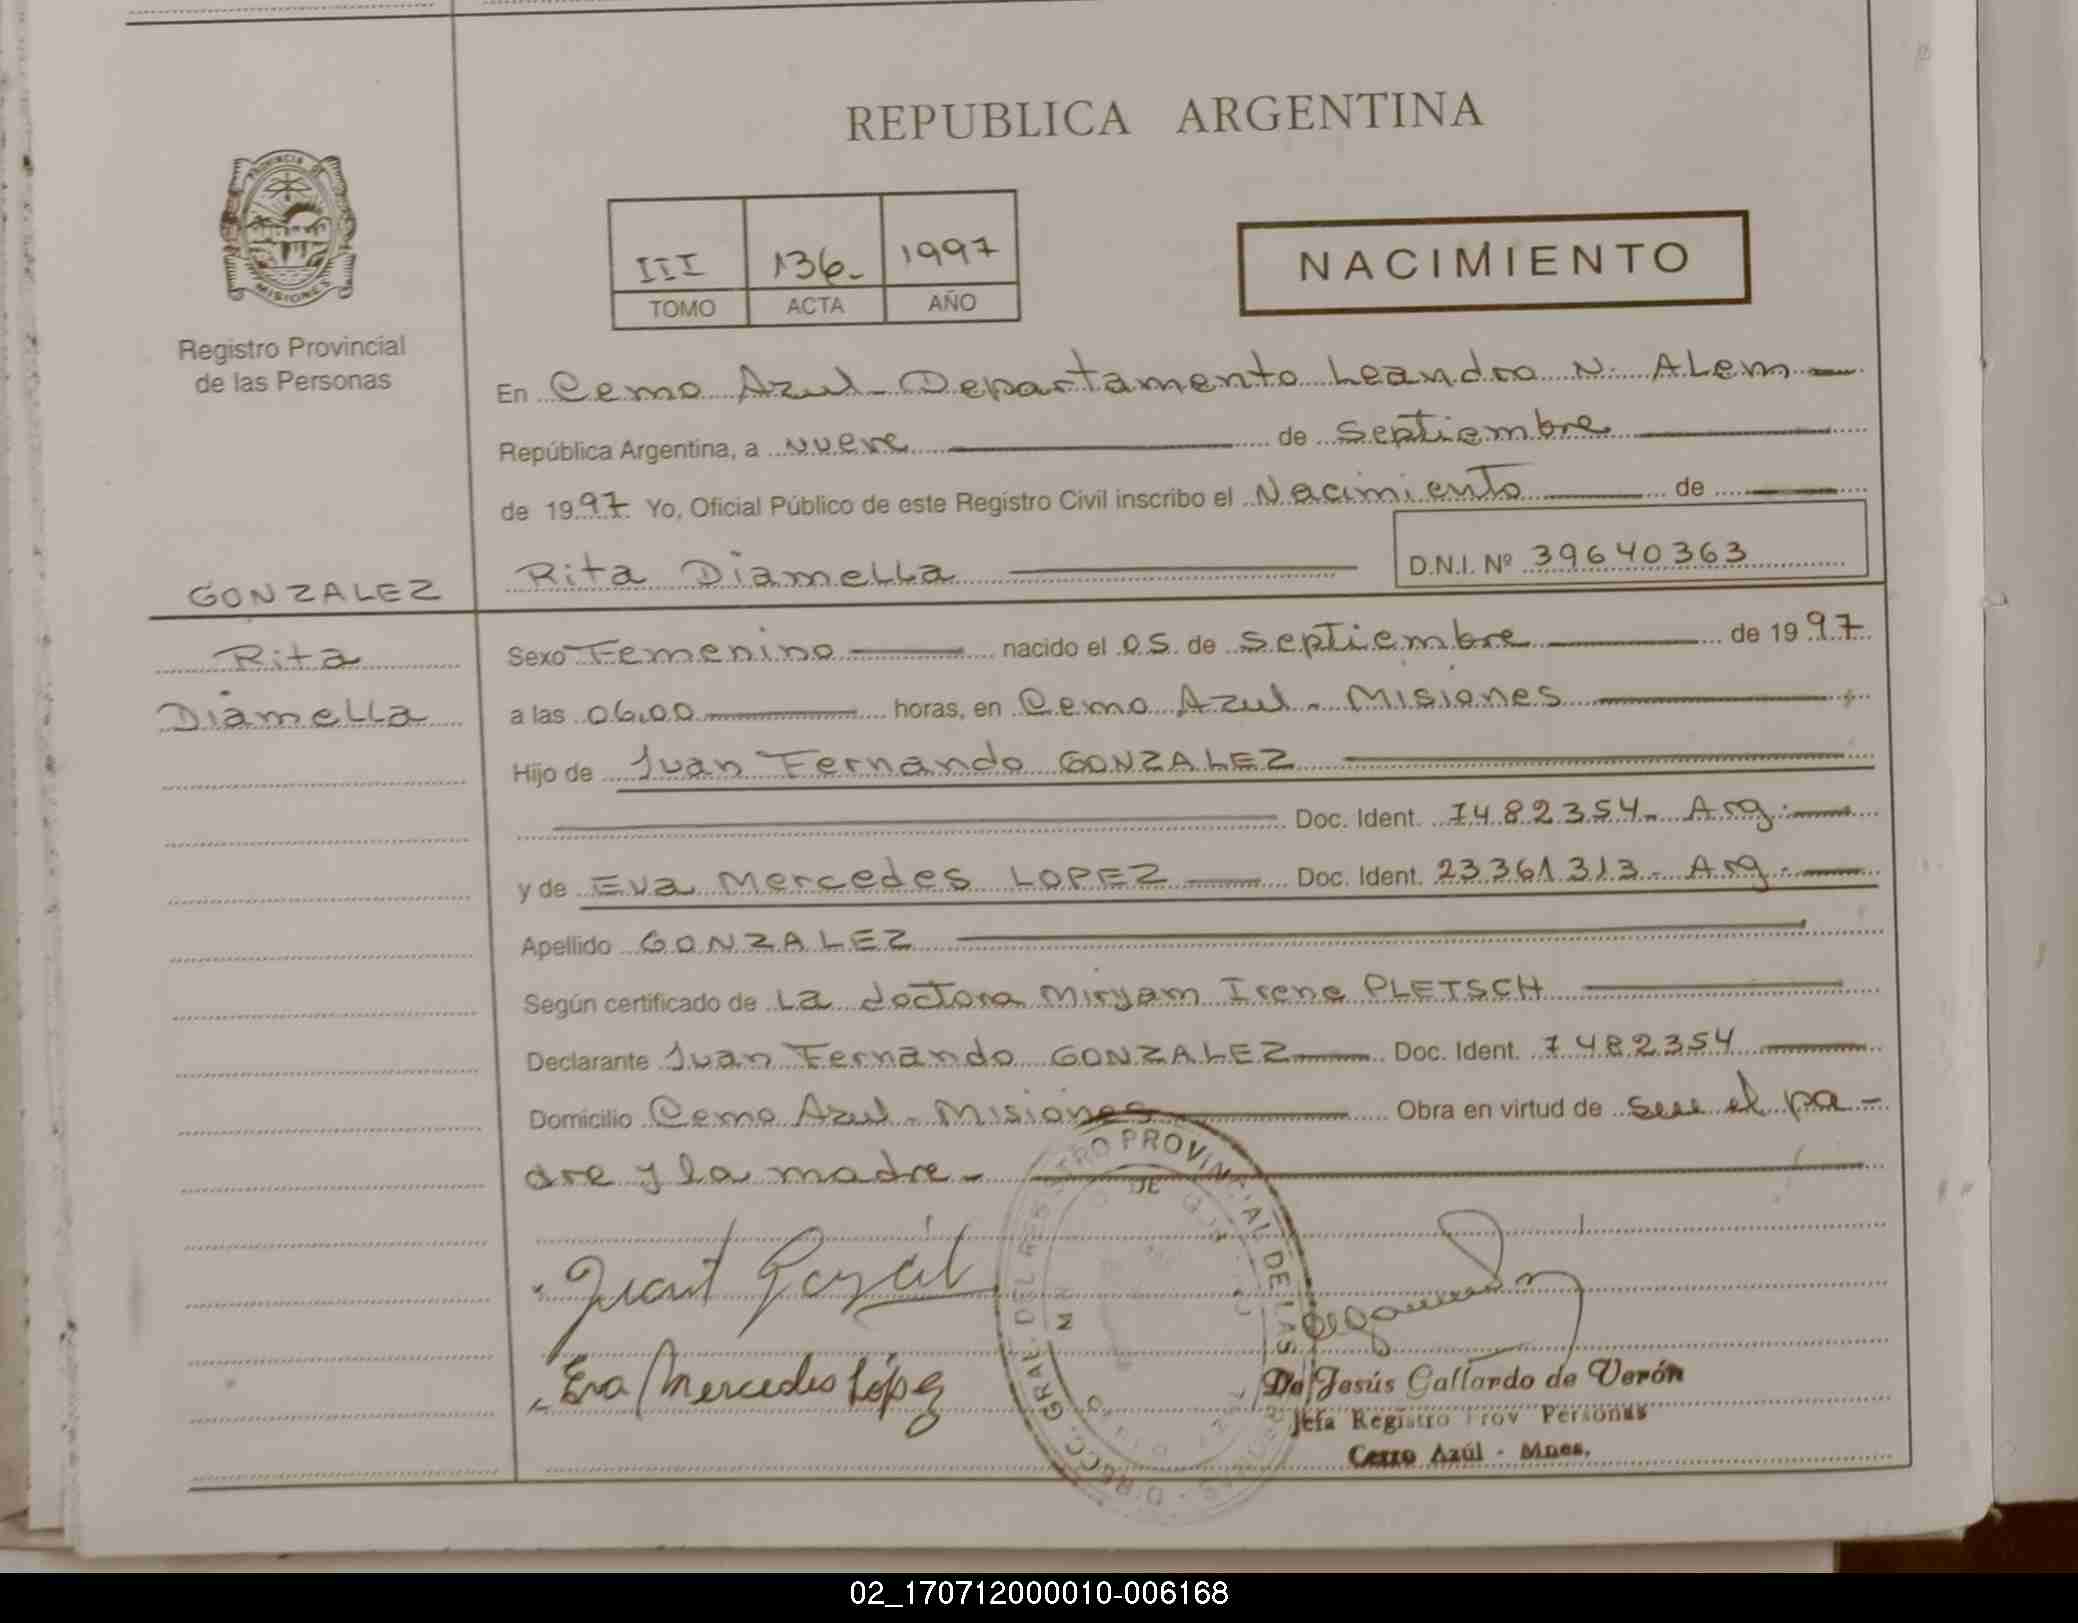 REPUBLICA ARGENTINA
PROVINCIA DE
MISIONES
Registro Provincial
de las Personas
III 136- 1997
TOMO ACTA AÑO
NACIMIENTO
En Cerro Azul - Departamento Leandro N. Alem
República Argentina, a nueve de septiembre
de 1997 Yo, Oficial Público de este Registro Civil inscribo el Nacimiento de
Rita Diamella D.N.I. Nº 39640363
GONZALEZ
Rita
Diamella
Sexo Femenino nacido el 05 de septiembre de 1997
a las 06.00 horas, en Cerro Azul - Misiones
Hijo de Juan Fernando GONZALEZ
Doc. Ident. 7482354- Arg.
y de Eva Mercedes LOPEZ Doc. Ident. 23361313- Arg.
Apellido GONZALEZ
Según certificado de La doctora Miryam Irene PLETSCH
Declarante Juan Fernando GONZALEZ Doc. Ident. 7482354
Domicilio Cerro Azul - Misiones Obra en virtud de ser el pa-
dre y la madre-
DIRECC. GRAL. DEL REGISTRO PROVINCIAL DE LAS PERSONAS
Eva Mercedes López
De Jesús Gallardo de Verón
Jefa Registro Prov Personas
Cerro Azúl - Mnes.
02_170712000010-006168